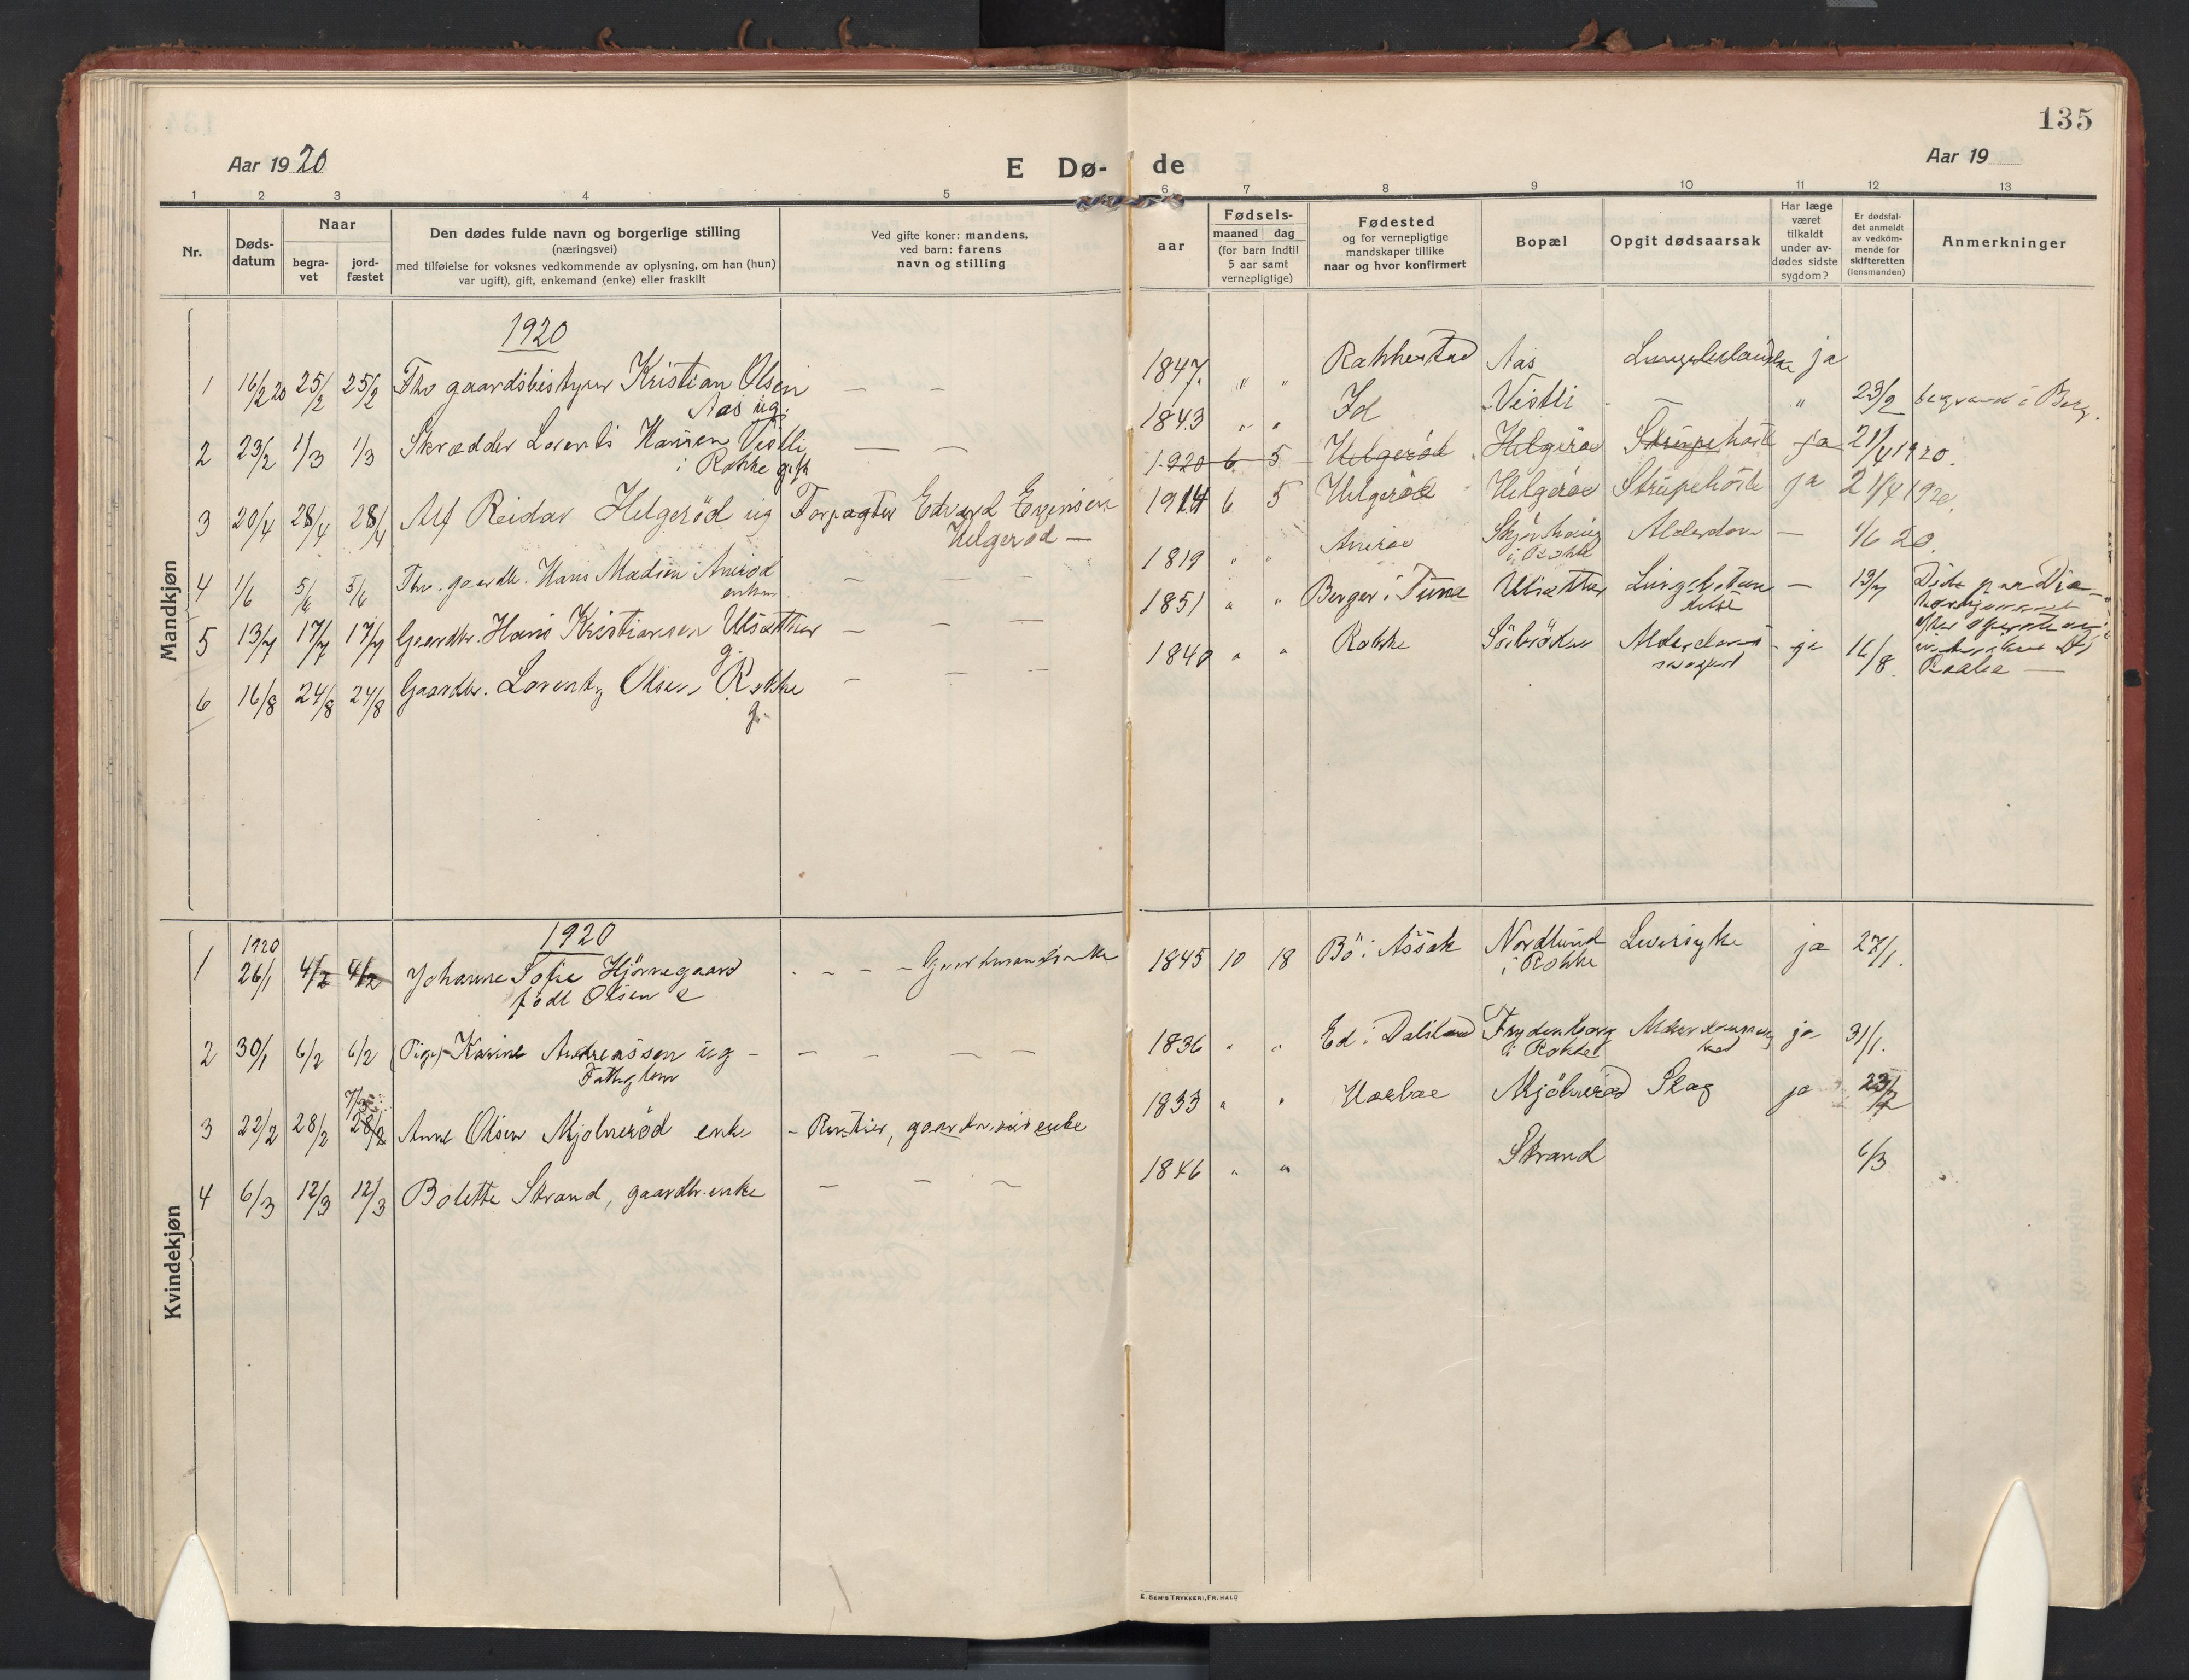 135
Aar 1920
E Dø- de
Aar 19
1 2 3 4 5 6 7 8 9 10 11 12 13
Nr.
Døds-
datum
Naar
begra-
vet
jord-
fæstet
Den dødes fulde navn og borgerlige stilling
(næringsvei)
med tilføielse for voksnes vedkommende av oplysning, om han (hun)
var ugift), gift, enkemand (enke) eller fraskilt
Ved gifte koner: mandens,
ved barn: farens
navn og stilling
aar
Fødsels-
maaned dag
(for barn indtil
5 aar samt
vernepligtige)
Fødested
og for vernepligtige
mandskaper tillike
naar og hvor konfirmert
Bopæl
Opgit dødsaarsak
Har læge
været
tilkaldt
under av-
dødes sidste
sygdom?
Er dødsfal-
det anmeldt
av vedkom-
mende for
skifteretten
(lensmanden)
Anmerkninger
Mandkjøn
1920
1 16/2 20 25/2 25/2 Fhv gaardsbestyrer Kristian Olsen — — 1847. " " Rakkestad Aas ja
Aas ug.
2 23/2 1/3 1/3 Skrædder Lorents Hansen Vestli — — 1843 " " Id Vestli - — " 23/2 begravet i Berg.
i Rokke gift
1920 6 5 Helgerød Helgerød Strupehoste ja 21/4 1920.
3 20/4 28/4 28/4 Alf Reidar Helgerød ug Forpagter Edvard Evensen 1914 6 5 Helgerød Helgerød Strupehoste ja 21/4 1920.
Helgerød —
4 1/6 5/6 5/6 Fhv. gaardb. Hans Madsen Anerød — — — 1819 " " Anerød Skjønhaug Alderdom — 1/6 20.
enkem. i Rokke
5 13/7 17/7 17/7 Gaardbr. Hans Kristiansen Ulsæther — — — 1851 " " Berger i Tune Ulsæther — 13/7
g.
6 16/8 24/8 24/8 Gaardbr. Lorentz Olsen Rokke — — — 1840 " " Rokke Sörbröden Alderdoms- ja 16/8.
g. svaghed
Kvindekjøn
1920
1 1920 26/1 4/2 4/2 Johanne Sofie Hjörnegaard - - - - Gaardmandsenke 1845 10 18 Bö i Assak Nordlund Leversyke ja 27/1.
født Olsen e i Rokke
2 30/1 6/2 6/2 (Pige) Karine Andreassen ug - — — — — 1836 " " Ed i Dalsland Frydenborg ja 31/1.
Fattiglem i Rokke
7/3
3 22/2 28/2 28/2 Anne Olsen Mjølnerød enke - Rentier, gaardmandsenke 1833 " " Mjølnerød Slag ja 23/2
4 6/3 12/3 12/3 Bolette Strand, gaardbr. enke — — — 1846 " " Strand 6/3
E. SEM'S TRYKKERI, FR. HALD